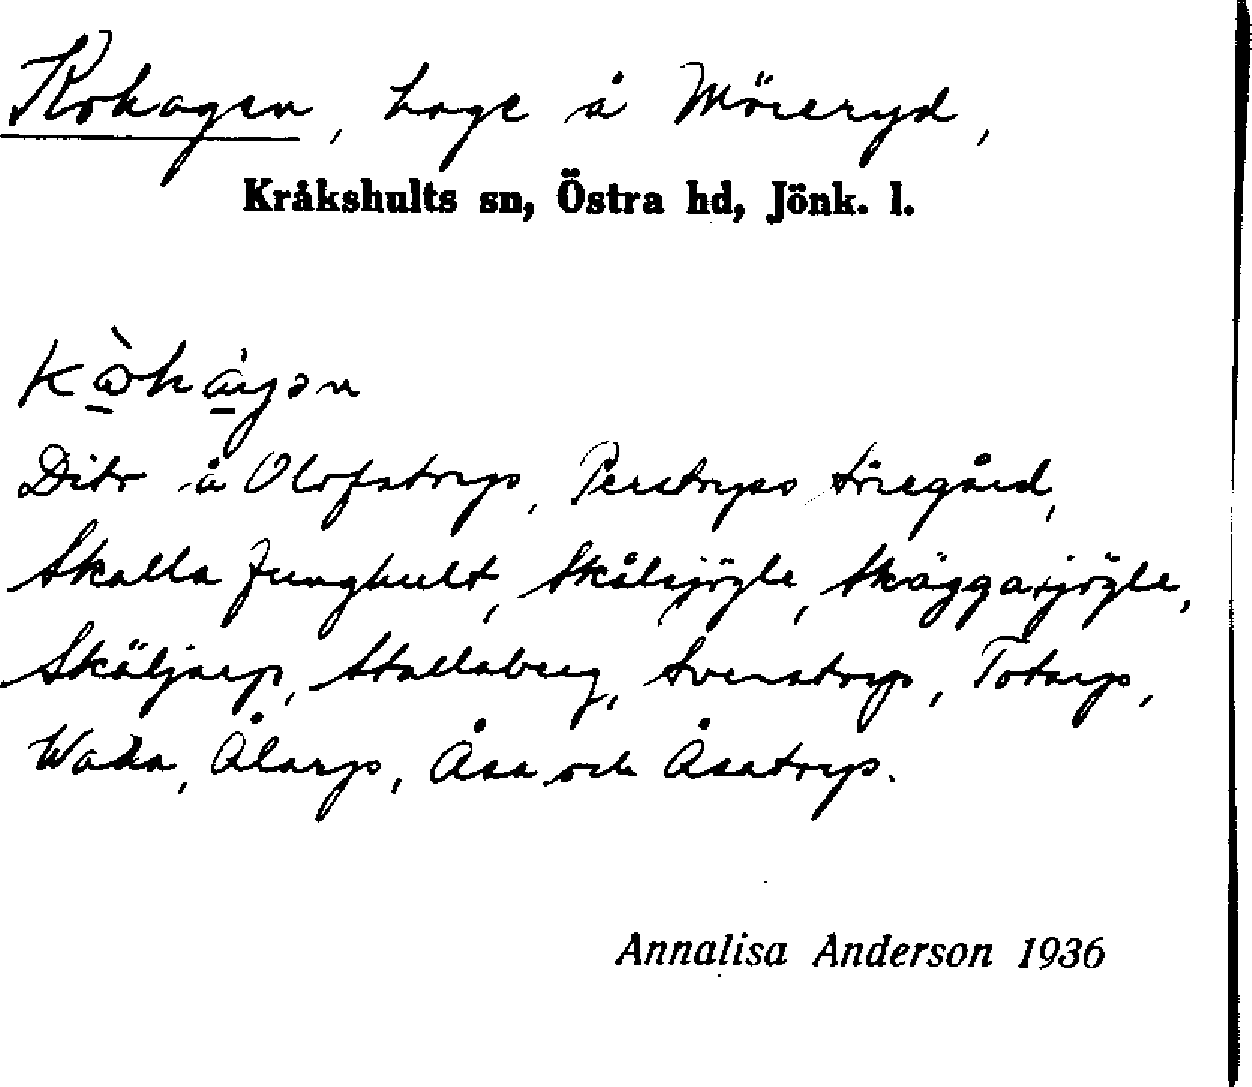 Kohagen, hage å Möreryd,
Kråkshults sn, Östra hd, Jönk. l.
Dito å Olofstorp, Perstorps Söregård,
Skalla Ljunghult, Skälsjögle, Skäggasjögle,
Skäljarp, Stallaberg, Svenstorp, Totarp,
Wada, Ålarp, Åsa och Åsatorp.
Annalisa Anderson 1936